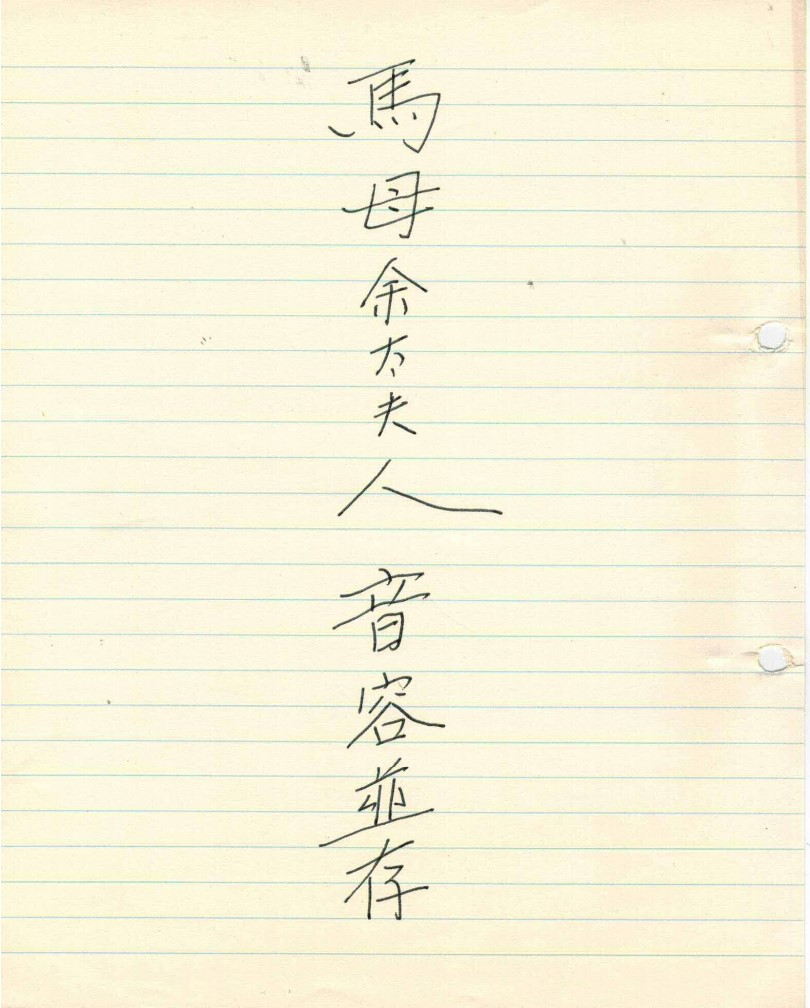 馬母余太夫人 音容並存